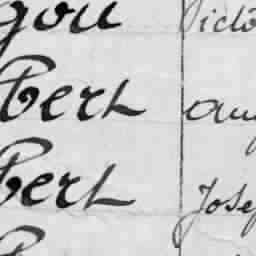 gou Victo
bert Aug
bert Josep